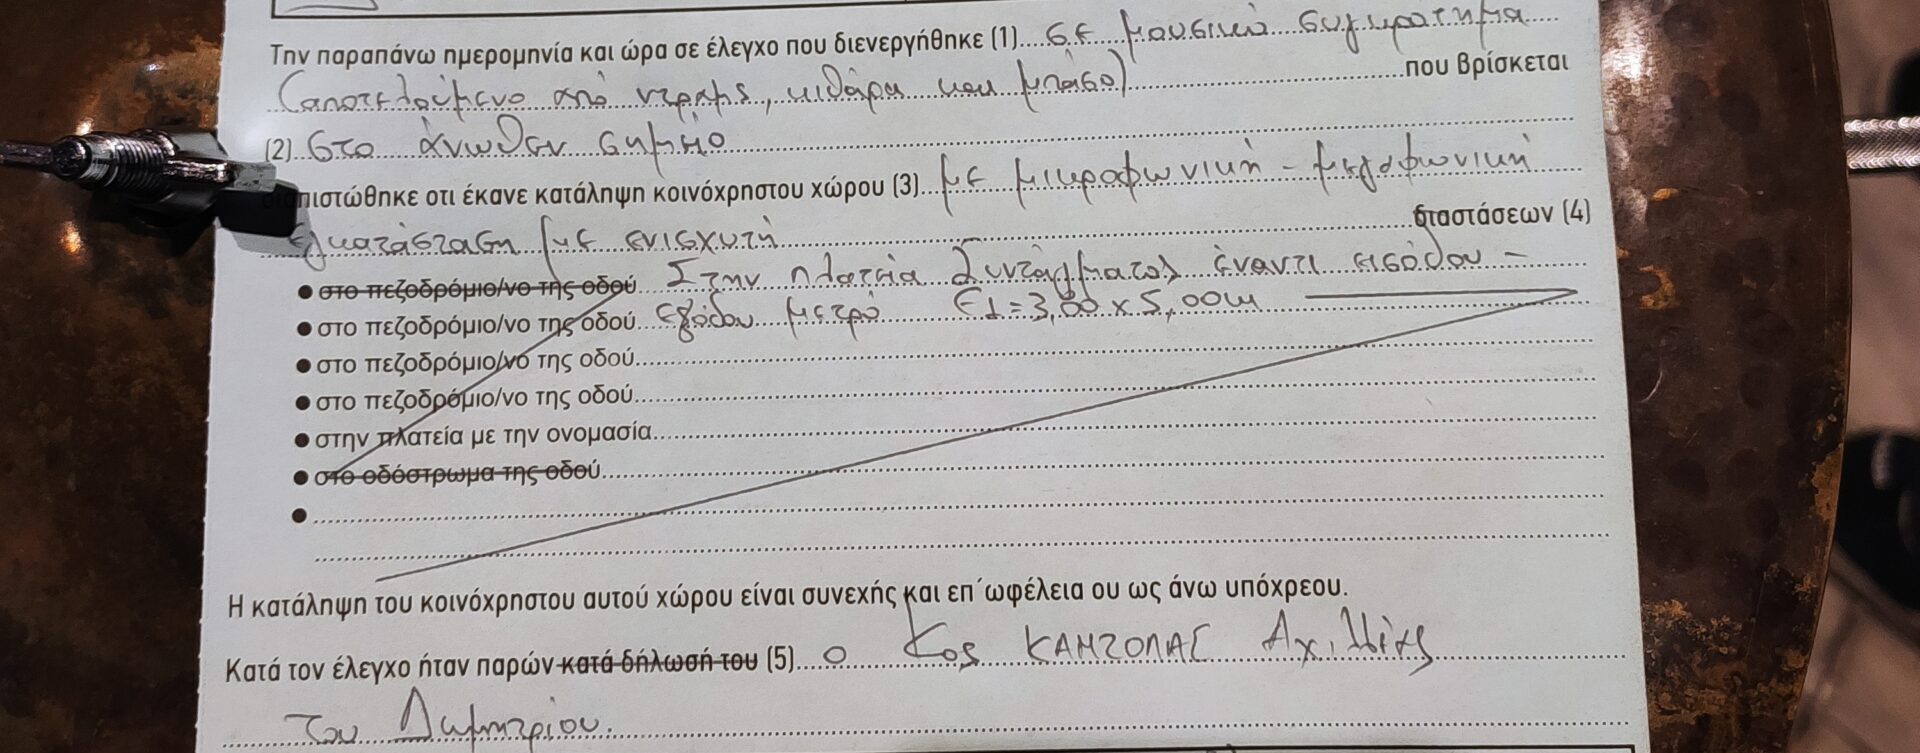 Την παραπάνω ημερομηνία και ώρα σε έλεγχο που διενεργήθηκε (1) σε μουσικό συγκρότημα
(αποτελούμενο από ντραμς, κιθάρα και μπάσο) που βρίσκεται
(2) στο άνωθεν σημείο
διαπιστώθηκε οτι έκανε κατάληψη κοινόχρηστου χώρου (3) με μικροφωνική - μεγαφωνική
εγκατάσταση με ενισχυτή διαστάσεων (4)
● στο πεζοδρόμιο/νο της οδού Στην πλατεία Συντάγματος έναντι εισόδου -
● στο πεζοδρόμιο/νο της οδού εξόδου μετρό Ε1=3,00 x 5,00m
● στο πεζοδρόμιο/νο της οδού
● στο πεζοδρόμιο/νο της οδού
● στην πλατεία με την ονομασία
● στο οδόστρωμα της οδού
●
Η κατάληψη του κοινόχρηστου αυτού χώρου είναι συνεχής και επ΄ωφέλεια ου ως άνω υπόχρεου.
Κατά τον έλεγχο ήταν παρών κατά δήλωσή του (5) ο κος Αχιλλέας
του Δημητρίου.